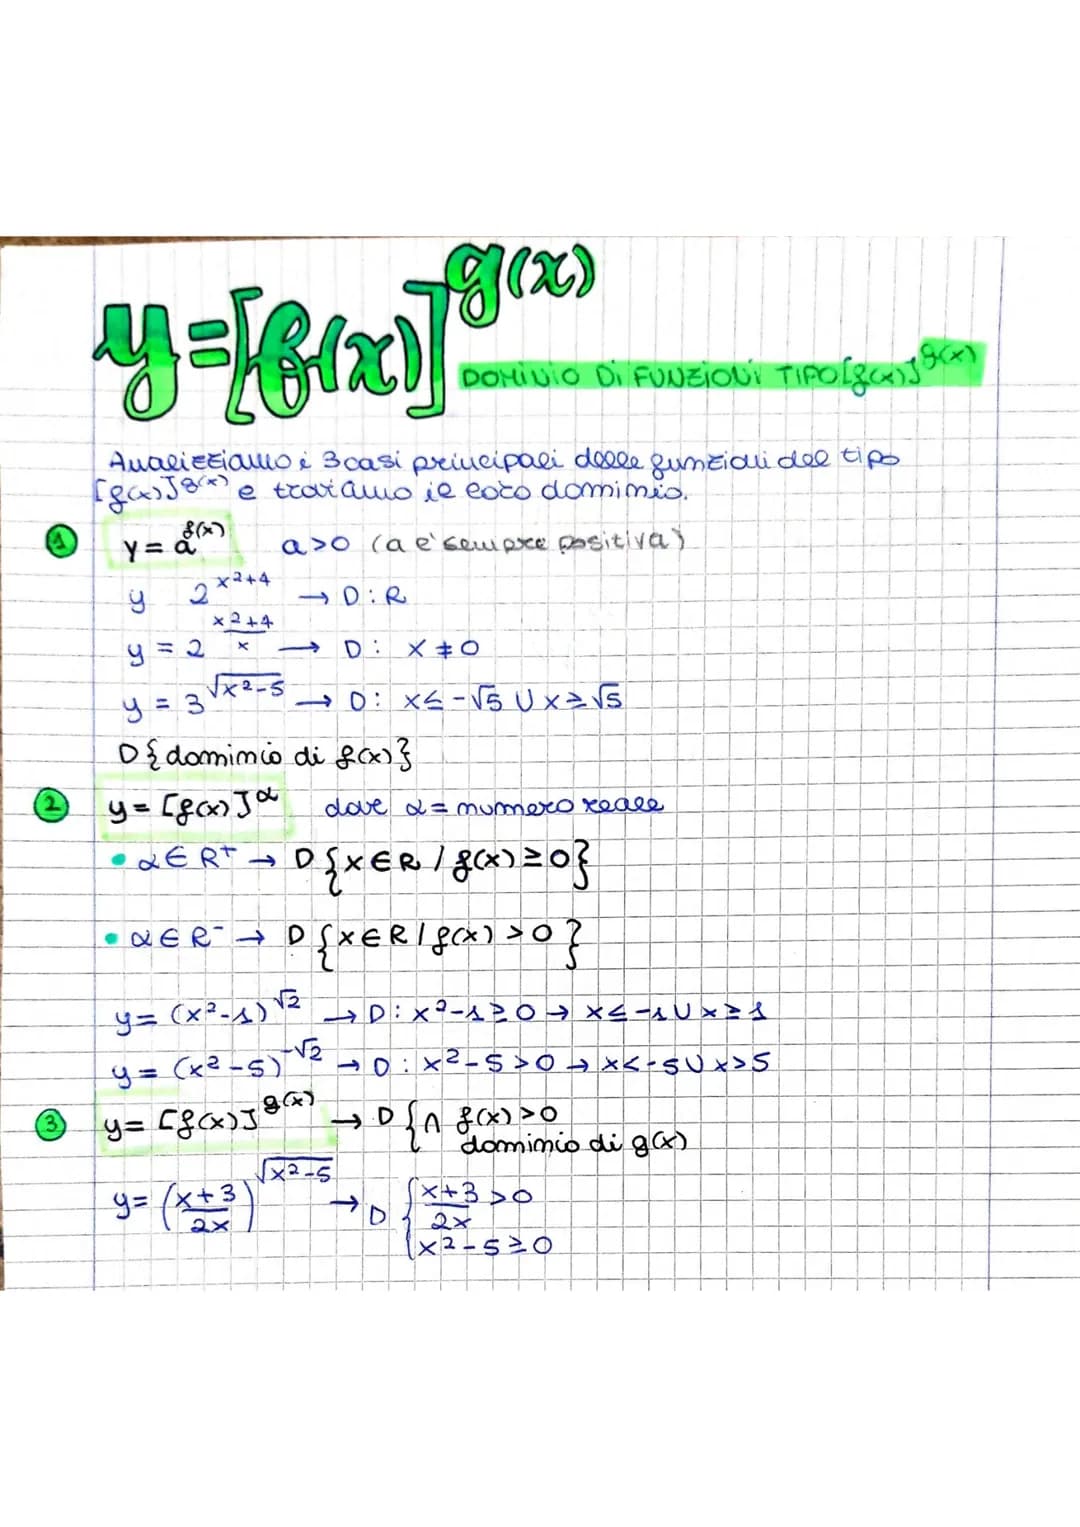 y=[f(x)]^g(x)
DOMINIO Di FUNZIONI TIPO [f(x)]^g(x)
Analizziamo i 3 casi principali delle funzioni del tipo
[f(x)]^g(x) e troviamo il loro dominio.
1 y = a^f(x) a>0 (a e' sempre positiva)
y 2^x²+4 → D: R
y = 2^(x²+4)/x → D: x ≠ 0
y = 3^√x²-5 → D: x≤-√5 ∪ x≥√5
D{dominio di f(x)}
2 y = [f(x)]^α dove α = numero reale
• α ∈ R⁺ → D {x∈R / f(x) ≥ 0}
• α ∈ R⁻ → D {x∈R / f(x) > 0}
y = (x²-1)^√2 → D: x²-1≥0 → x≤-1 ∪ x≥1
y = (x²-5)^-√2 → D: x²-5>0 → x<-5 ∪ x>5
3 y = [f(x)]^g(x) → D { ∩ f(x) >0
dominio di g(x)
y = (x+3/2x)^√x²-5 → D { x+3/2x >0
x²-5≥0